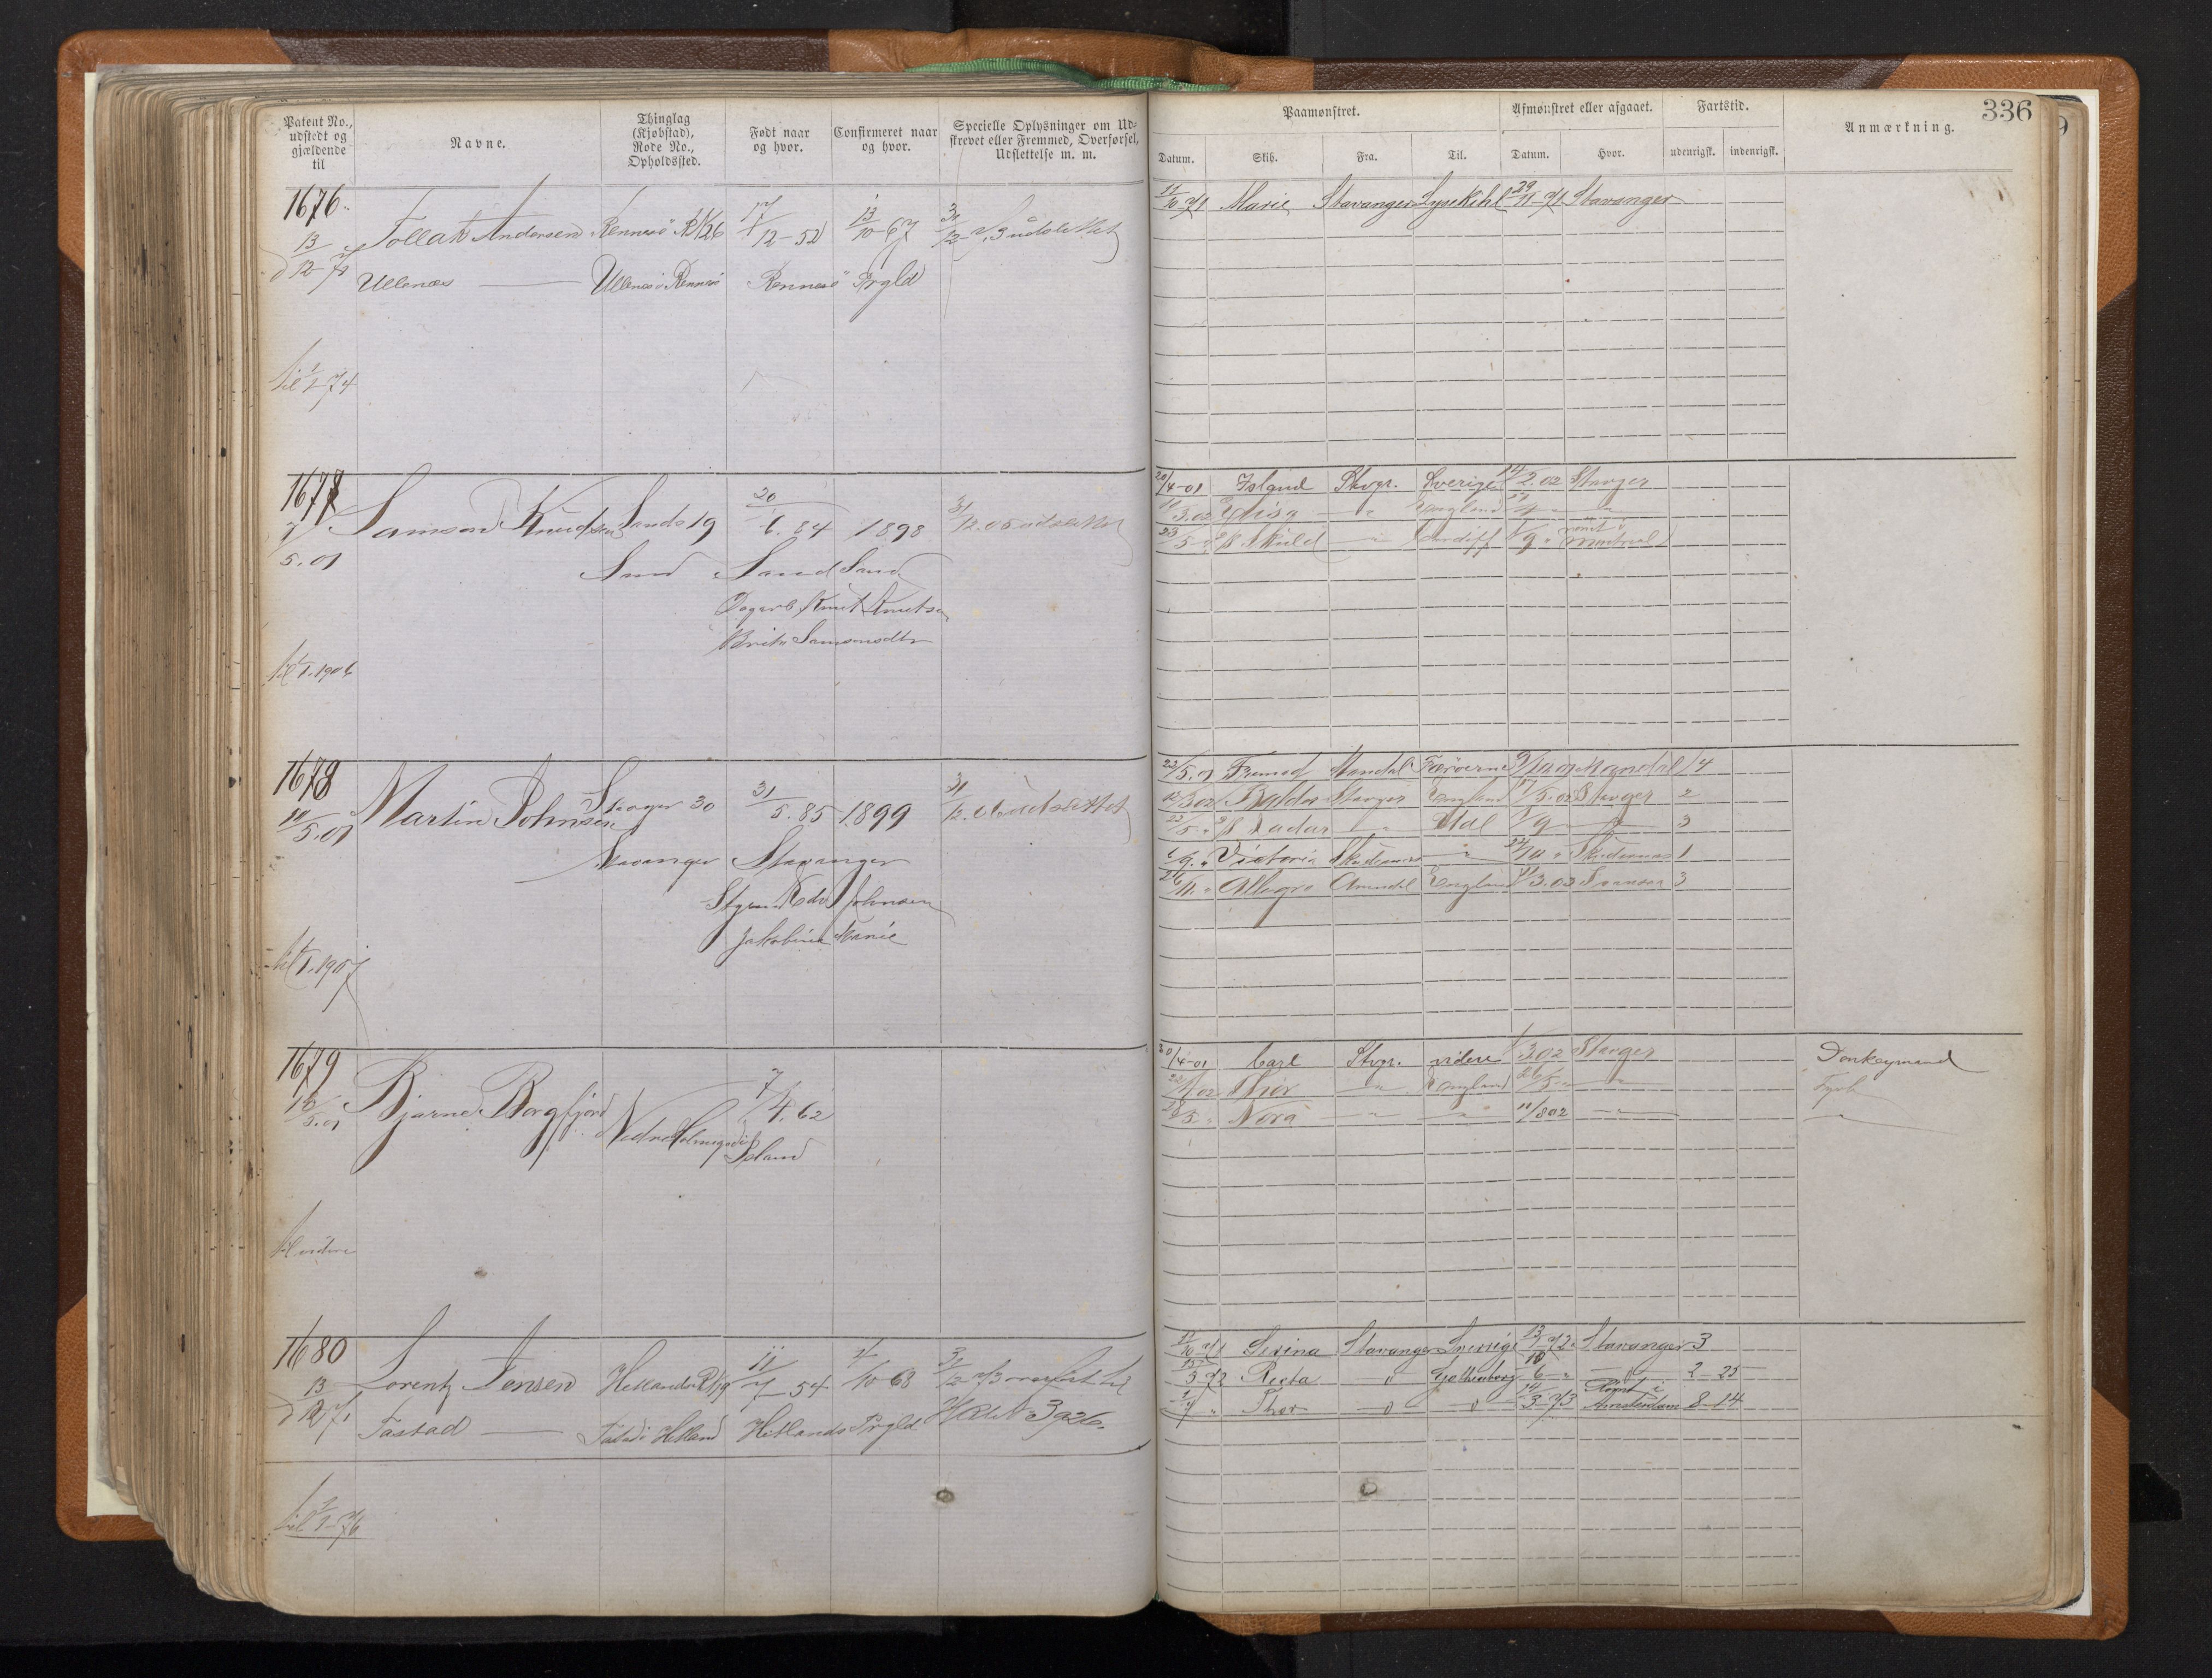 336
Patent No., udstedt og gjældende til
Navne.
Thinglag (Kjøbstad), Rode No., Opholdssted.
Født naar og hvor.
Confirmeret naar og hvor.
Specielle Oplysninger om Udskrevet eller Fremmed, Overførsel, Udslettelse m. m.
Paamønstret.
Afmønstret eller afgaaet.
Fartstid.
Anmærkning.
Datum. Skib. Fra. Til. Datum. Hvor. udenrigsk. indenrigsk.
1676
13/12-71 Tollak Andersen Rennesø 17/12-52 13/10-67 31/12-73 udslettet
Ullenæs Ullenæs i Rennesø Rennesø Rgld
til 1/1-74
11/10 71 Marie Stavanger Lysekihl 29/11-71 Stavanger
1677
7/5.01 Samson Knudsen Sands 19 20/6.84 1898 31/12.05 udslettet
Sand Sand Sand
Dagarb Knut Knutsen
Brita Samsonsdtr
til 1/1.1906
20/4-01 Island Stvgr. Sverige 14/2.02 Stavger
3.02 Elisa " England
23/5 " Skuld " Cardiff /9 " rømt i Montreal
1678
10/5.01 Martin Johnsen Stavger 30 31/5.85 1899 31/12.06 udslettet
Stavanger Stavanger
Styrm Edv Johnsen
Jakobine Marie
til 1/1.1907
22/5.01 Fremad Mandal Færøerne 9/10 01 Mandal 4
12/3 02 Baldor Stavger England 17/5.02 Stavger 2
22/5 " Radar " Udl /9 " 3
/9. " Victoria Skudesnes " 22/10 " Skudesnæs 1
26/11. " Allegro Arendal England 11/3.03 Swansea 3
1679
10/5.01 Bjarne Borgfjord Nedre Holmegade 7/4.62
Island
til videre
30/4-01 Carl Stvgr. videre 1/3.02 Stavger Donkeymand
22/1/02 Thor " England 26/5 " " Fyrb
/5 " Nora " " 11/8 02 "
1680
13/12 71 Lorentz Jensen Hetlands 11/7-54 4/10-68 31/12 73 overført til
Tastad Tastad i Hetland Hetlands Rgld H. Rul. No 3926.
til 1/1-76
11/10 71 Serina Stavanger Sverrige 13/10-72 Stavanger 3
15/3 72 Recta " Gothenborg 6 " " 2-25
1/7 " Thor " " 14/3-73 Rømt i Amsterdam 8-14